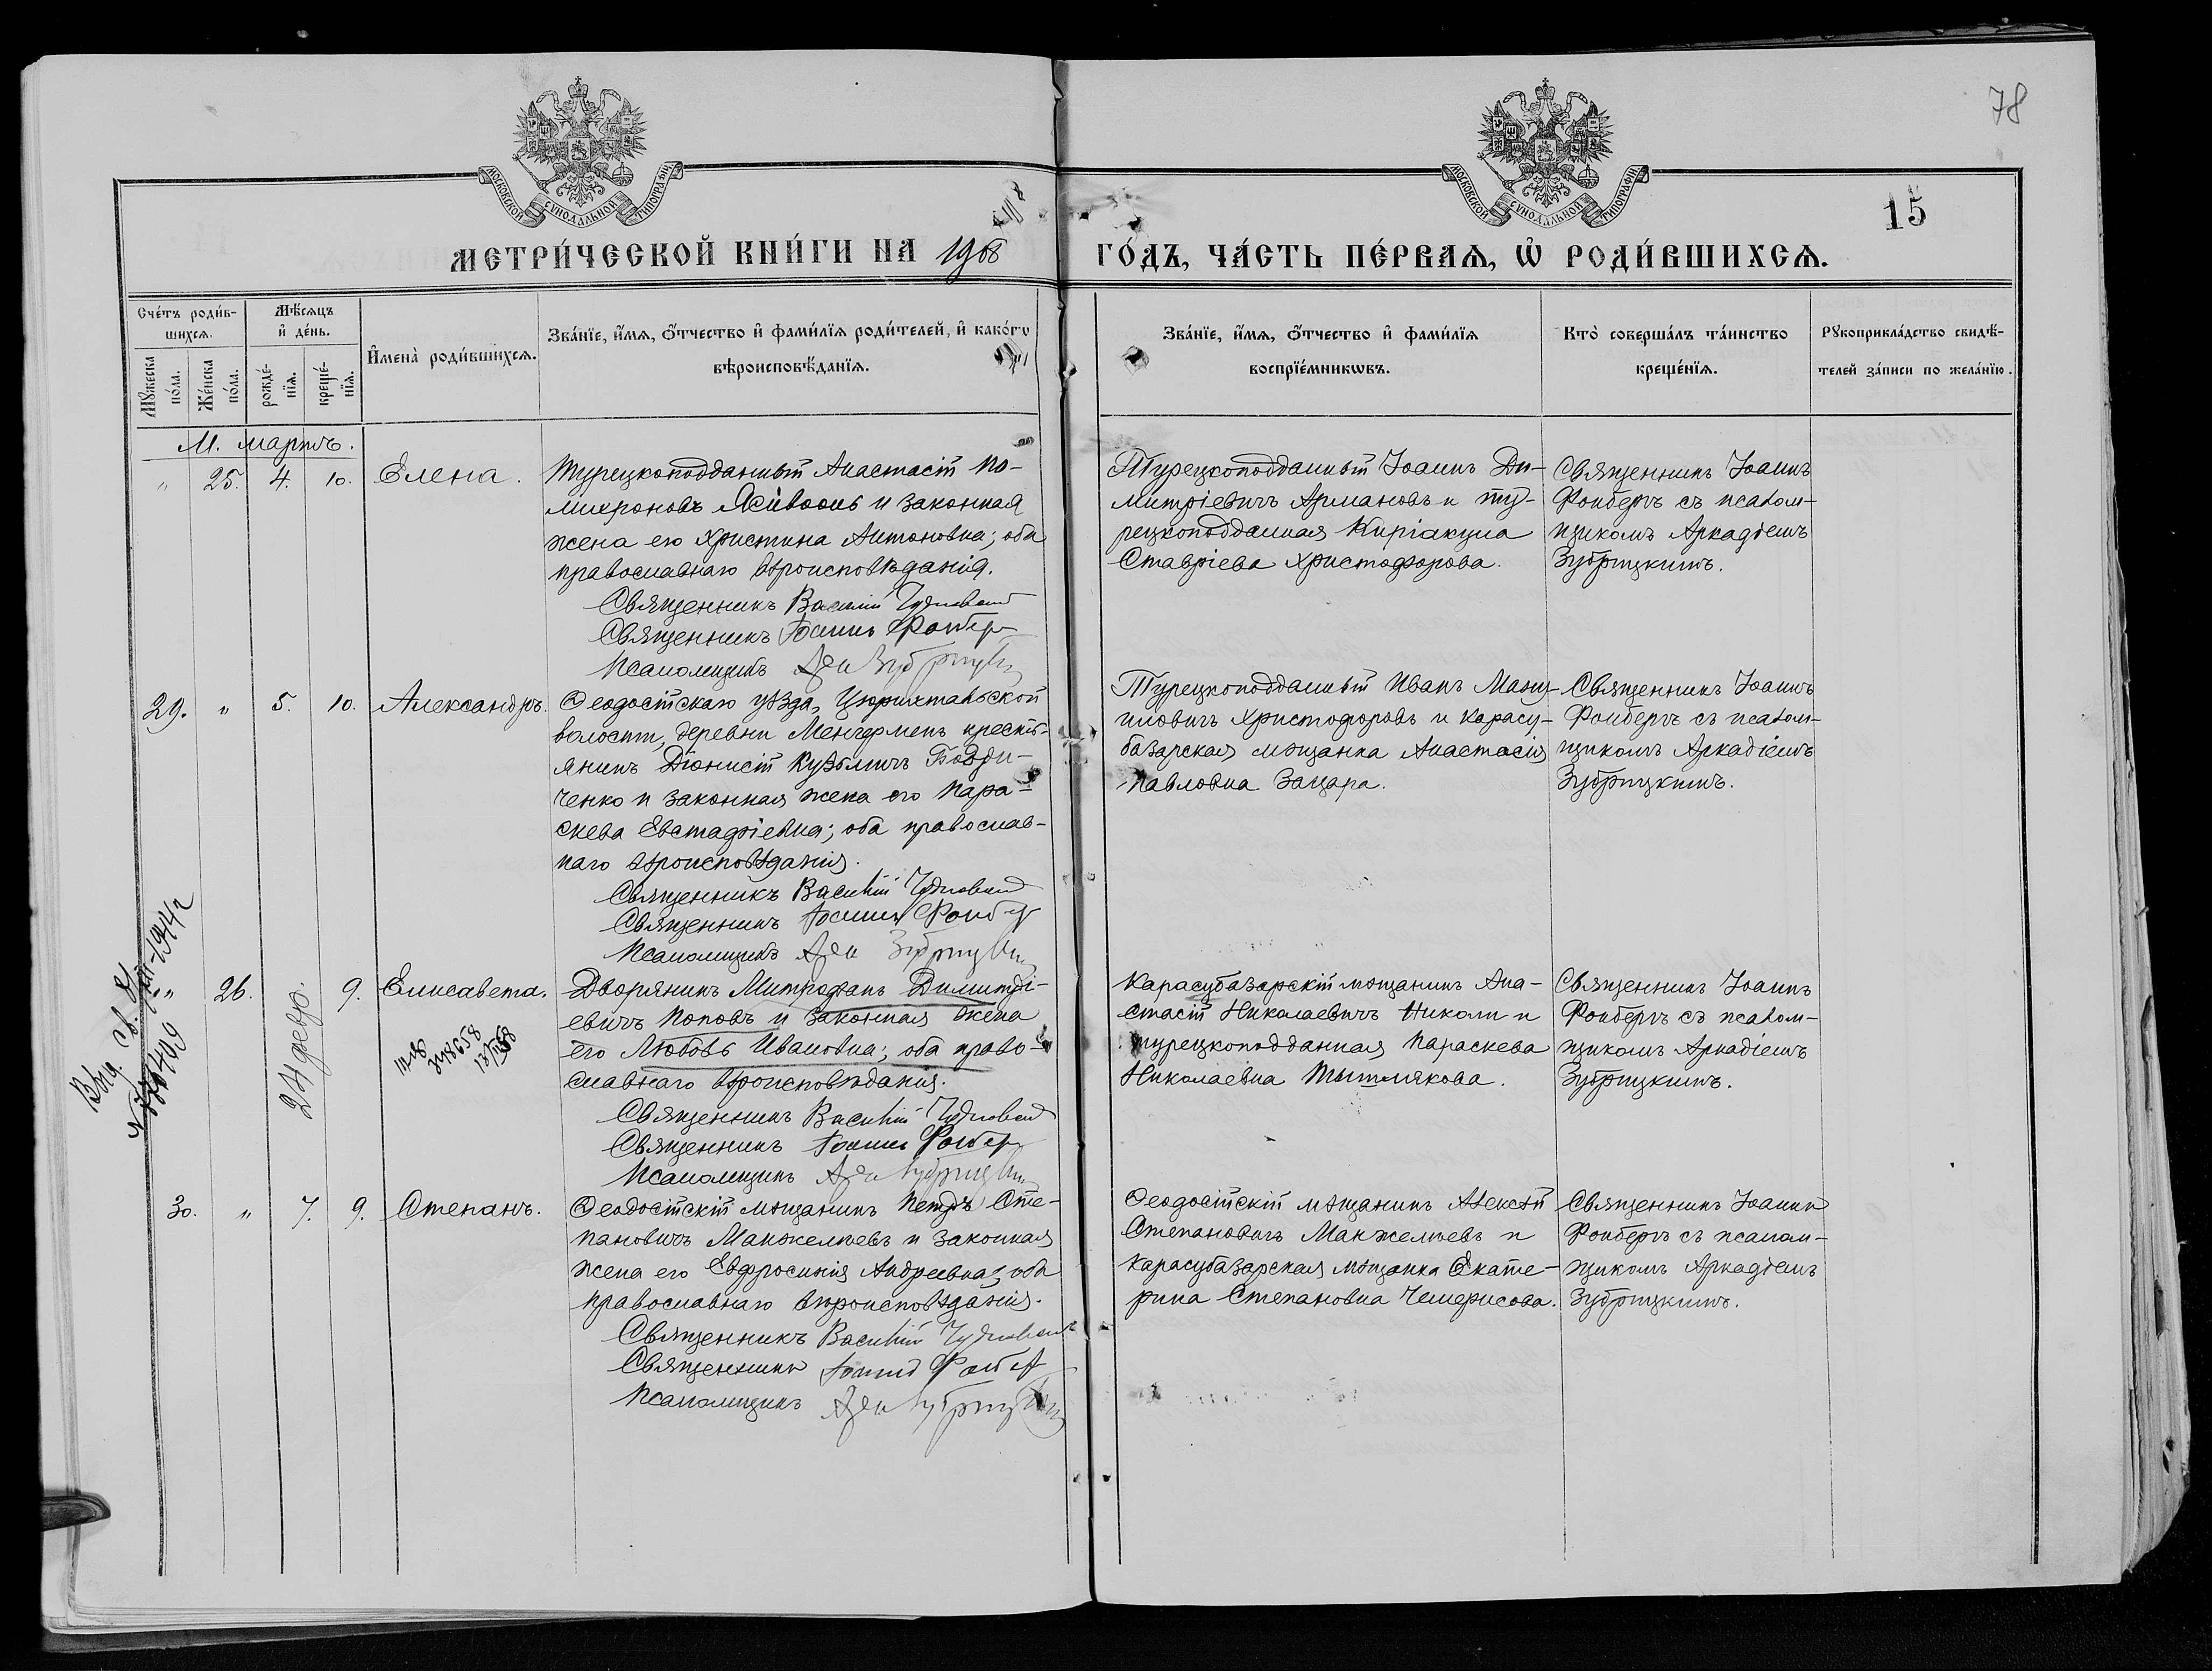 78
15
МОСКОВСКОЙ СѴНОДАЛЬНОЙ ТИПОГРАФИИ
МОСКОВСКОЙ СѴНОДАЛЬНОЙ ТИПОГРАФИИ
МЕТРИ́ЧЕСКОЙ КНИ́ГИ НА 1908
ГО́ДЪ, ЧА́СТЬ ПЕ́РВАѦ, Ѡ҆ РОДИ́ВШИХСѦ.
Сче́тъ роди́в-
шихсѧ.
Мꙋжеска по́ла.
Же́нска по́ла.
Мѣ́сѧцъ
и҆ де́нь.
рожде́-
нїѧ.
креще́-
нїѧ.
И҆мена̀ роди́вшихсѧ.
Зва́нїе, и҆́мѧ, ѻ҆́тчество и҆ фами́лїѧ роди́телей, и҆ како́гѡ
вѣроисповѣ́данїѧ.
Зва́нїе, и҆́мѧ, ѻ҆́тчество и҆ фами́лїѧ
воспрїе́мникѡвъ.
Кто̀ соверша́лъ та́инство
креще́нїѧ.
Рꙋкоприкла́дство свидѣ́-
телей за́писи по жела́нїю.
М. мартъ.
" 25. 4. 10. Елена.
Турецкоподданый Анастасій По-
лихроновъ и законная
жена его Христина Антоновна; оба
православнаго вѣроисповѣданія.
Священникъ Василій
Священникъ Іоаннъ Фонберъ
Псаломщикъ Арк Зубрицкій
Турецкоподданый Іоаннъ Ди-
митріевичъ Армановъ и ту-
рецкоподданная Киріакула
Ставріева Христофорова.
Священникъ Іоаннъ
Фонберъ съ псалом-
щикомъ Аркадіемъ
Зубрицкимъ.
29. " 5. 10. Александръ.
Ѳеодосійскаго уѣзда, Цюрихтальской
волости, деревни Менгерменъ крестья-
янинъ Діонисій Кузьмичъ
ченко и законная жена его Пара-
скева Евстафіевна; оба православ-
наго вѣроисповѣданія.
Священникъ Василій
Священникъ Іоаннъ Фонберъ
Псаломщикъ Арк Зубрицкій
Турецкоподданый Иванъ Ману-
иловичъ Христофоровъ и Карасу-
базарская мѣщанка Анастасія
Павловна Зацара.
Священникъ Іоаннъ
Фонберъ съ псалом-
щикомъ Аркадіемъ
Зубрицкимъ.
" 26. 24 февр. 9. Елисавета.
Дворянинъ Митрофанъ Димитрі-
евичъ Поповъ и законная жена
его Любовь Ивановна; оба право-
славнаго вѣроисповѣданія.
Священникъ Василій
Священникъ Іоаннъ Фонберъ
Псаломщикъ Арк Зубрицкій
Карасубазарскій мѣщанинъ Ана-
стасій Николаевичъ Николи и
турецкоподданная Параскева
Николаевна
Священникъ Іоаннъ
Фонберъ съ псалом-
щикомъ Аркадіемъ
Зубрицкимъ.
30. " 7. 9. Степанъ.
Ѳеодосійскій мѣщанинъ Петръ Сте-
пановичъ Манжелѣевъ и законная
жена его Евфросинія Андреевна; оба
православнаго вѣроисповѣданія.
Священникъ Василій
Священникъ Іоаннъ Фонберъ
Псаломщикъ Арк Зубрицкій
Ѳеодосійскій мѣщанинъ Алексѣй
Степановичъ Манжелѣевъ и
Карасубазарская мѣщанка Екате-
рина Степановна Чемерисова.
Священникъ Іоаннъ
Фонберъ съ псалом-
щикомъ Аркадіемъ
Зубрицкимъ.